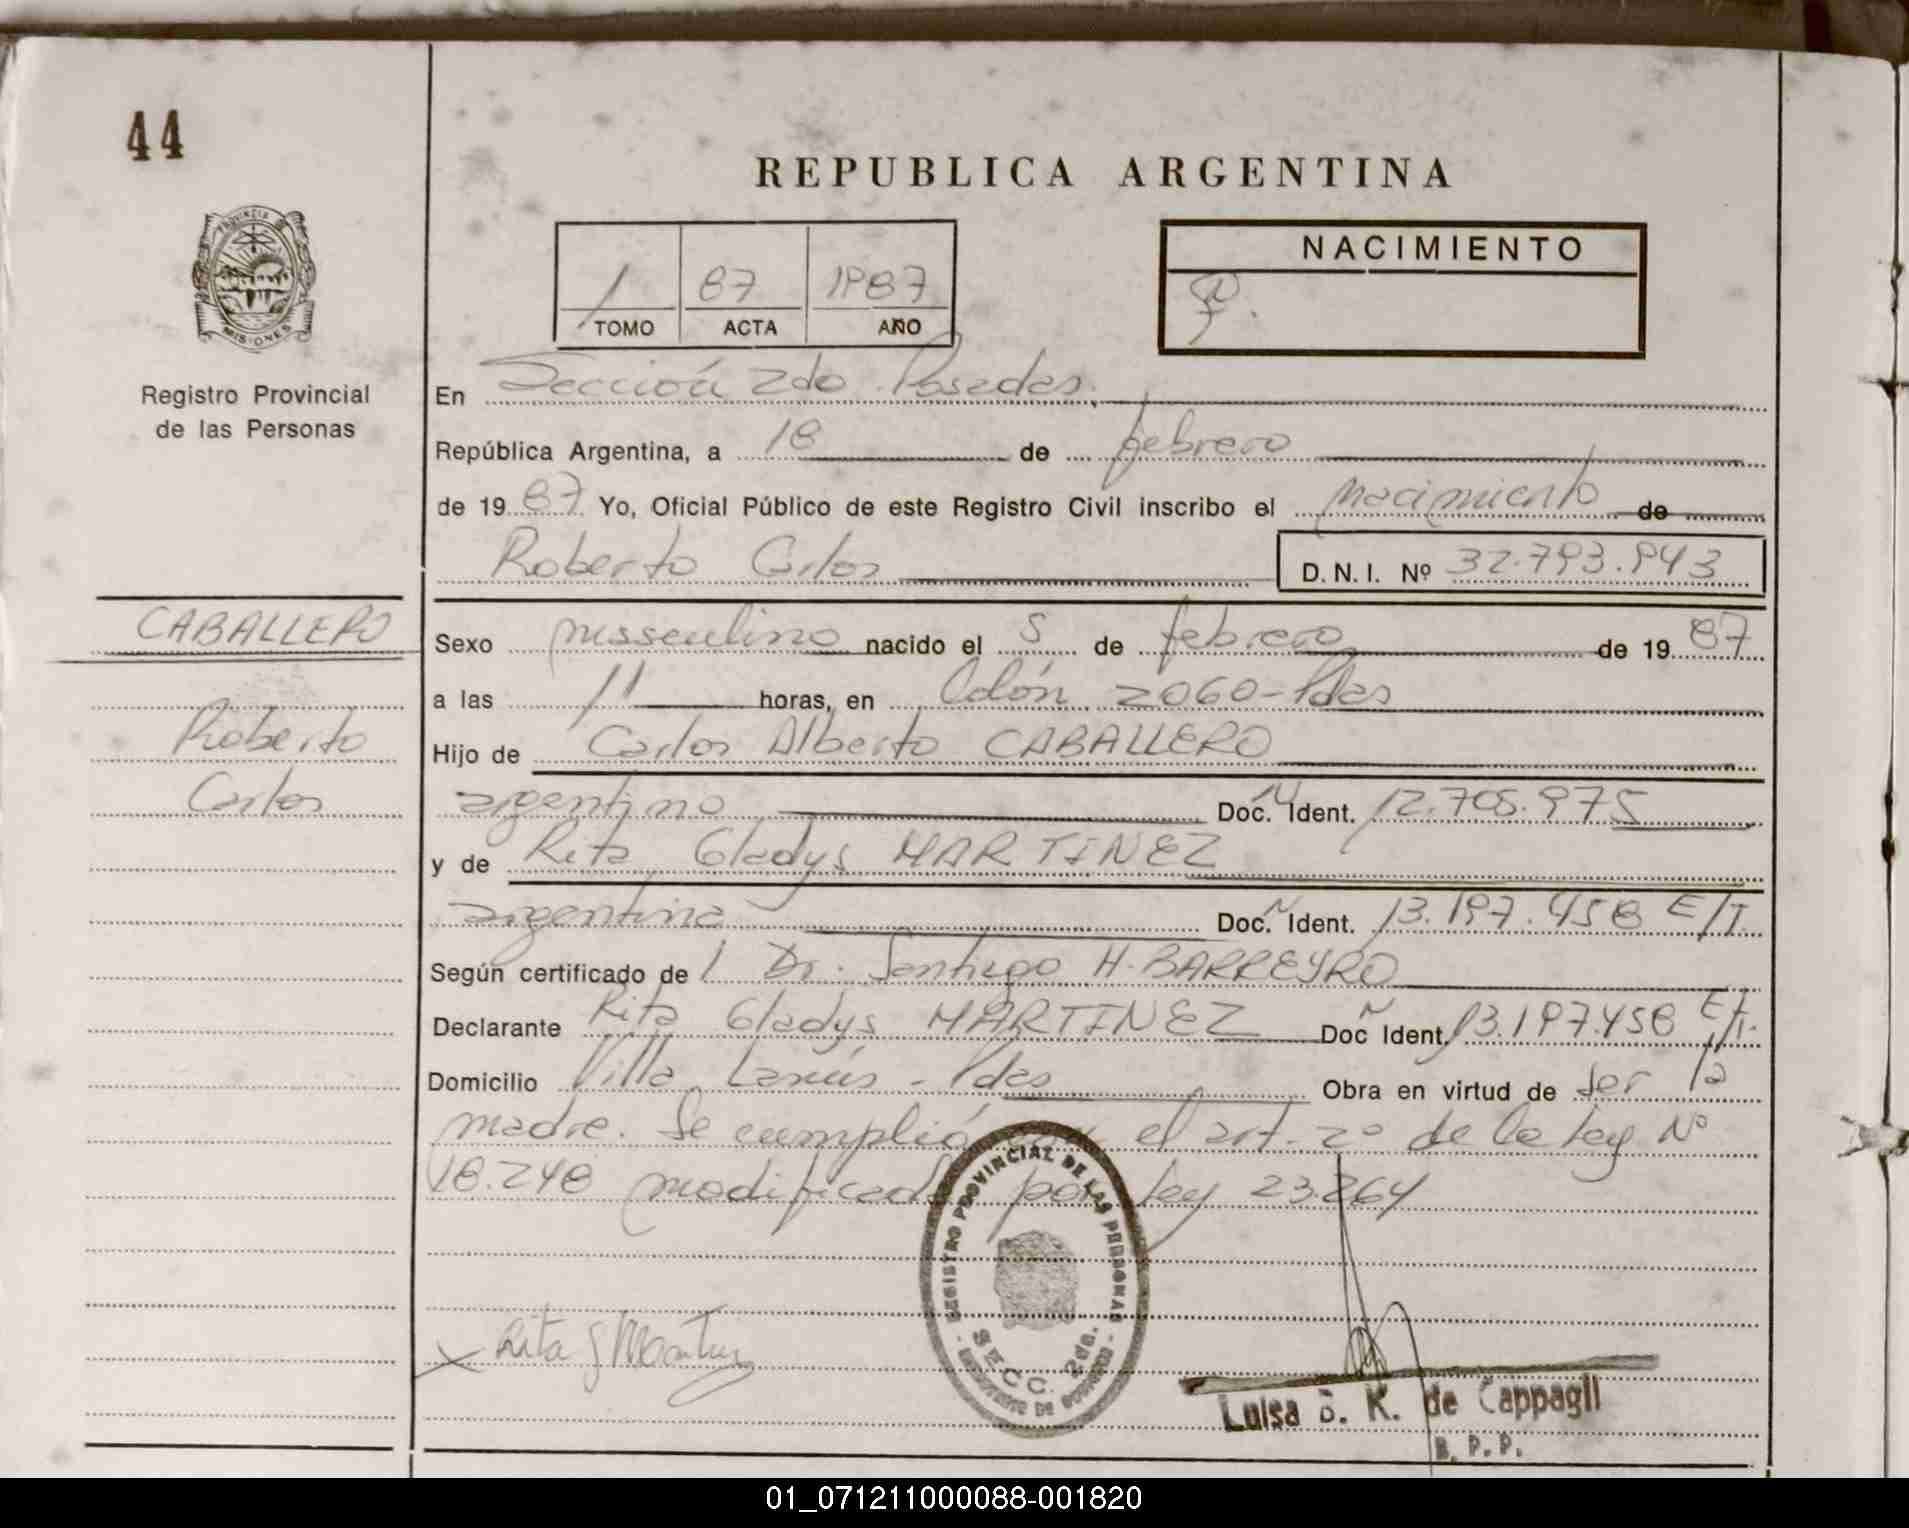 44
REPUBLICA ARGENTINA
PROVINCIA DE
MISIONES
Registro Provincial
de las Personas
1 87 1987
TOMO ACTA AÑO
NACIMIENTO
En Sección 2do Posadas.
República Argentina, a 18 de febrero
de 1987 Yo, Oficial Público de este Registro Civil inscribo el nacimiento de
Roberto Carlos D.N.I. Nº 32.793.943
CABALLERO
Roberto
Carlos
Sexo masculino nacido el 5 de febrero de 1987
a las 11 horas, en Colón 2060-Pdas
Hijo de Carlos Alberto CABALLERO
argentino Doc. Ident. 12.705.975
y de Rita Gladys MARTINEZ
argentina Doc. Ident. 13.197.458 E/T.
Según certificado de l Dr. Santiago H. BARREYRO
Declarante Rita Gladys MARTINEZ Doc Ident. 13.197.458 E/T.
Domicilio Villa Lanús - Pdas Obra en virtud de ser la
madre. Se cumplió con el art. 2º de la Ley Nº
18.248 modificada por Ley 23.264
REGISTRO PROVINCIAL DE LAS PERSONAS
SECC. 2da.
x Rita G Martinez
Luisa B. K. de Cappagli
B. P. P.
01_071211000088-001820